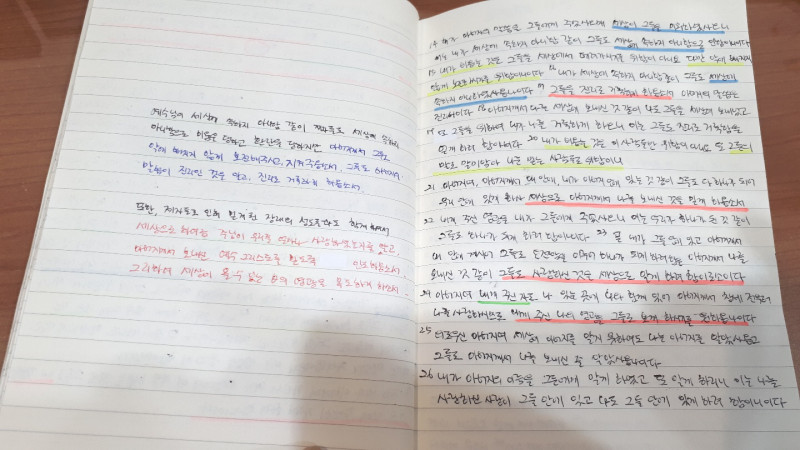 예수님이 세상에 속하지 아니함 같이 제자들도 세상에 속하지
아니함으로 미움을 당하고 환란을 당하지만 아버지께서 그들
악에 빠지지 않게 보전해주시고, 지켜주옵소서, 그들도 아버지의
말씀이 진리인 것을 알고, 진리로 거룩하게 하옵소서.
또한, 제자들로 인해 믿게 된 장래의 성도들과도 함께 하셔서
세상으로 하여금 주님이 우리를 얼마나 사랑하는지를 알고,
아버지께서 보내신 예수 그리스도를 믿도록 인도하옵소서.
그리하여 세상이 줄 수 없는 하나님의 영광을 보도록 하옵소서.
14 내가 아버지의 말씀을 그들에게 주었사오매 세상이 그들을 미워하였사오니
이는 내가 세상에 속하지 아니함 같이 그들도 세상에 속하지 아니함으로 인함이니이다
15 내가 비옵는 것은 그들을 세상에서 데려가시기를 위함이 아니요 다만 악에 빠지지
않게 보전하시기를 위함이니이다 16 내가 세상에 속하지 아니함 같이 그들도 세상에
속하지 아니하였사옵나이다 17 그들을 진리로 거룩하게 하옵소서 아버지의 말씀은
진리이니이다 18 아버지께서 나를 세상에 보내신 것 같이 나도 그들을 세상에 보내었고
19 또 그들을 위하여 내가 나를 거룩하게 하오니 이는 그들도 진리로 거룩함을
얻게 하려 함이니이다 20 내가 비옵는 것은 이 사람들만 위함이 아니요 또 그들의
말로 말미암아 나를 믿는 사람들도 위함이니
21 아버지여, 아버지께서 내 안에, 내가 아버지 안에 있는 것 같이 그들도 다 하나가 되어
우리 안에 있게 하사 세상으로 아버지께서 나를 보내신 것을 믿게 하옵소서
22 내게 주신 영광을 내가 그들에게 주었사오니 이는 우리가 하나가 된 것 같이
그들도 하나가 되게 하려 함이니이다 23 곧 내가 그들 안에 있고 아버지께서
내 안에 계시어 그들로 온전함을 이루어 하나가 되게 하려 함은 아버지께서 나를
보내신 것과 그들도 사랑하신 것을 세상으로 알게 하려 함이로소이다
24 아버지여 내게 주신 자도 나 있는 곳에 나와 함께 있어 아버지께서 창세 전부터
나를 사랑하시므로 내게 주신 나의 영광을 그들로 보게 하시기를 원하옵나이다
25 의로우신 아버지여 세상이 아버지를 알지 못하여도 나는 아버지를 알았사옵고
그들도 아버지께서 나를 보내신 줄 알았사옵나이다
26 내가 아버지의 이름을 그들에게 알게 하였고 또 알게 하리니 이는 나를
사랑하신 사랑이 그들 안에 있고 나도 그들 안에 있게 하려 함이니이다